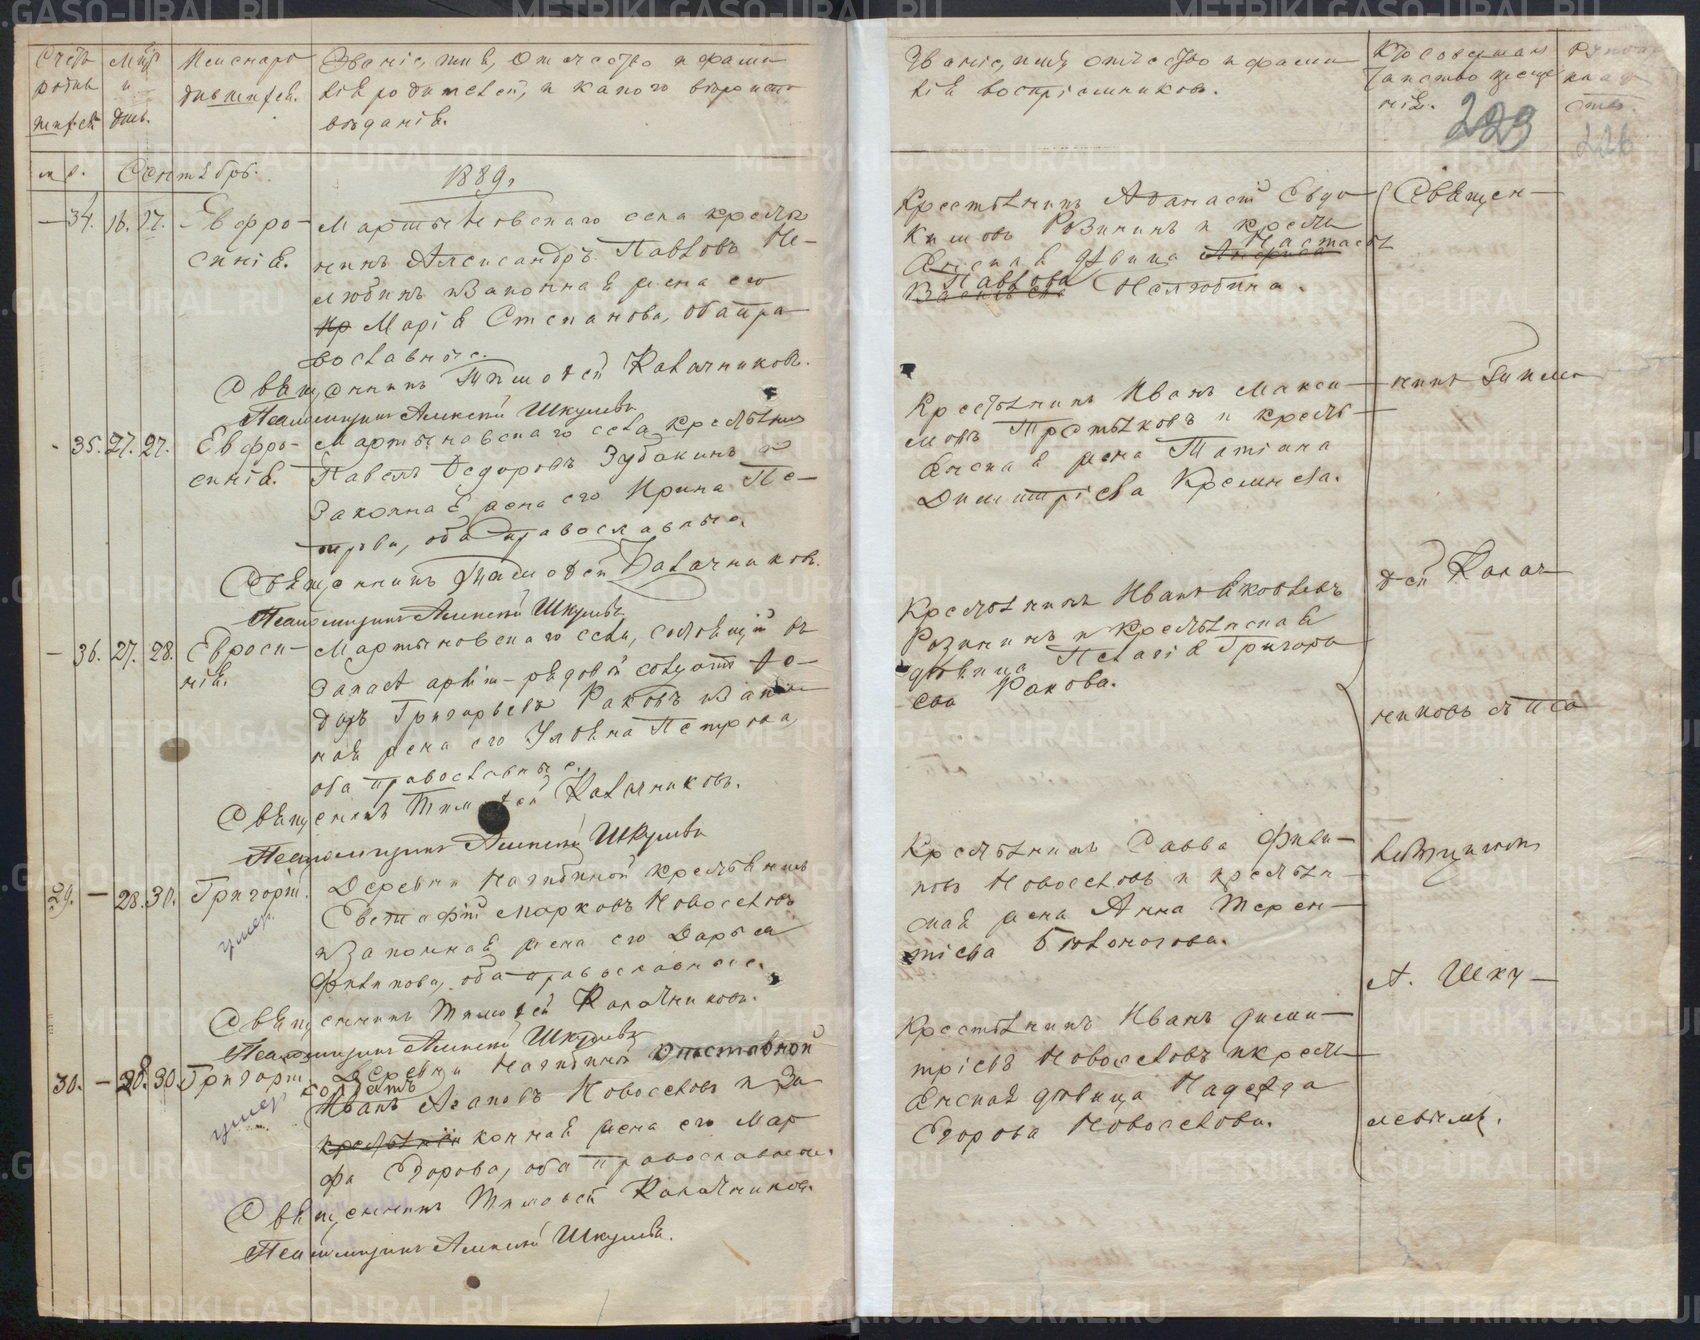 Счетъ родив шихся
Мѣс. и день.
Имена ро дившихся.
Званіе, имя, отчество и фами
лія родителей, и какого вѣроиспо
вѣданія.
м. ж.
Сентябрь.
1889.
— 34. 16. 17. Евфро-
синія.
Мартыновскаго села кресть
янинъ Александръ Павловъ Не-
любинъ и законная жена его
Марія Степанова, оба пра-
вославные.
Священникъ Тимоѳей Калачниковъ.
Псаломщикъ Алексѣй Шкулевъ
- 35. 27. 27. Евфро-
синія.
Мартыновскаго села крестьянинъ
Павелъ Ѳедоровъ Зубакинъ и
законная жена его Ирина Пе-
трова, оба православные.
Священникъ Тимоѳей Калачниковъ.
Псаломщикъ Алексѣй Шкулевъ
— 36. 27. 28. Евроси-
нія.
Мартыновскаго села, состоящій въ
запасѣ арміи рядовой солдатъ Ѳе-
доръ Григорьевъ Раковъ и закон-
ная жена его Ульяна Петрова,
оба православные.
Священникъ Тимоѳей Калачниковъ.
Псаломщикъ Алексѣй Шкулевъ
29. — 28. 30. Григорій.
умер.
Деревни Нагибиной крестьянинъ
Евстафій Марковъ Новоселовъ
и законная жена его Дарья
Филипова, оба православные.
Священникъ Тимоѳей Калачниковъ.
Псаломщикъ Алексѣй Шкулевъ
30. — 28. 30 Григорій
умер
Деревни Нагибиной отставной
солдатъ
Иванъ Агаповъ Новоселовъ и за
конная жена его Мар
фа Егорова, оба православные.
Священникъ Тимоѳей Калачниковъ.
Псаломщикъ Алексѣй Шкулевъ.
Званіе, имя, отчество и фами
лія воспріемниковъ.
Кто совершал
таинство креще
нія.
223
226
Крестьянинъ Аѳанасій Евдо-
кимовъ Розининъ и кресть
янская дѣвица Настасья
Павлова Нелюбина.
Крестьянинъ Иванъ Макси-
мовъ Третьяковъ и кресть-
янская жена Татіана
Димитріева Кремнева.
Крестьянинъ Иванъ Яковлевъ
Розининъ и крестьянская
дѣвица Пелагія Григорь
ева Ракова.
Крестьянинъ Савва Фили-
повъ Новоселовъ и крестьян-
ская жена Анна Терен-
тіева Бѣлоногова.
Крестьянинъ Иванъ Дими-
тріевъ Новоселовъ и кресть
янская дѣвица Надежда
Егорова Новоселова.
Священ-
никъ Тимо
ѳей Калач-
никовъ съ Пса
ломщикомъ
А. Шку-
левымъ.
METRIKI.GASO-URAL.RU